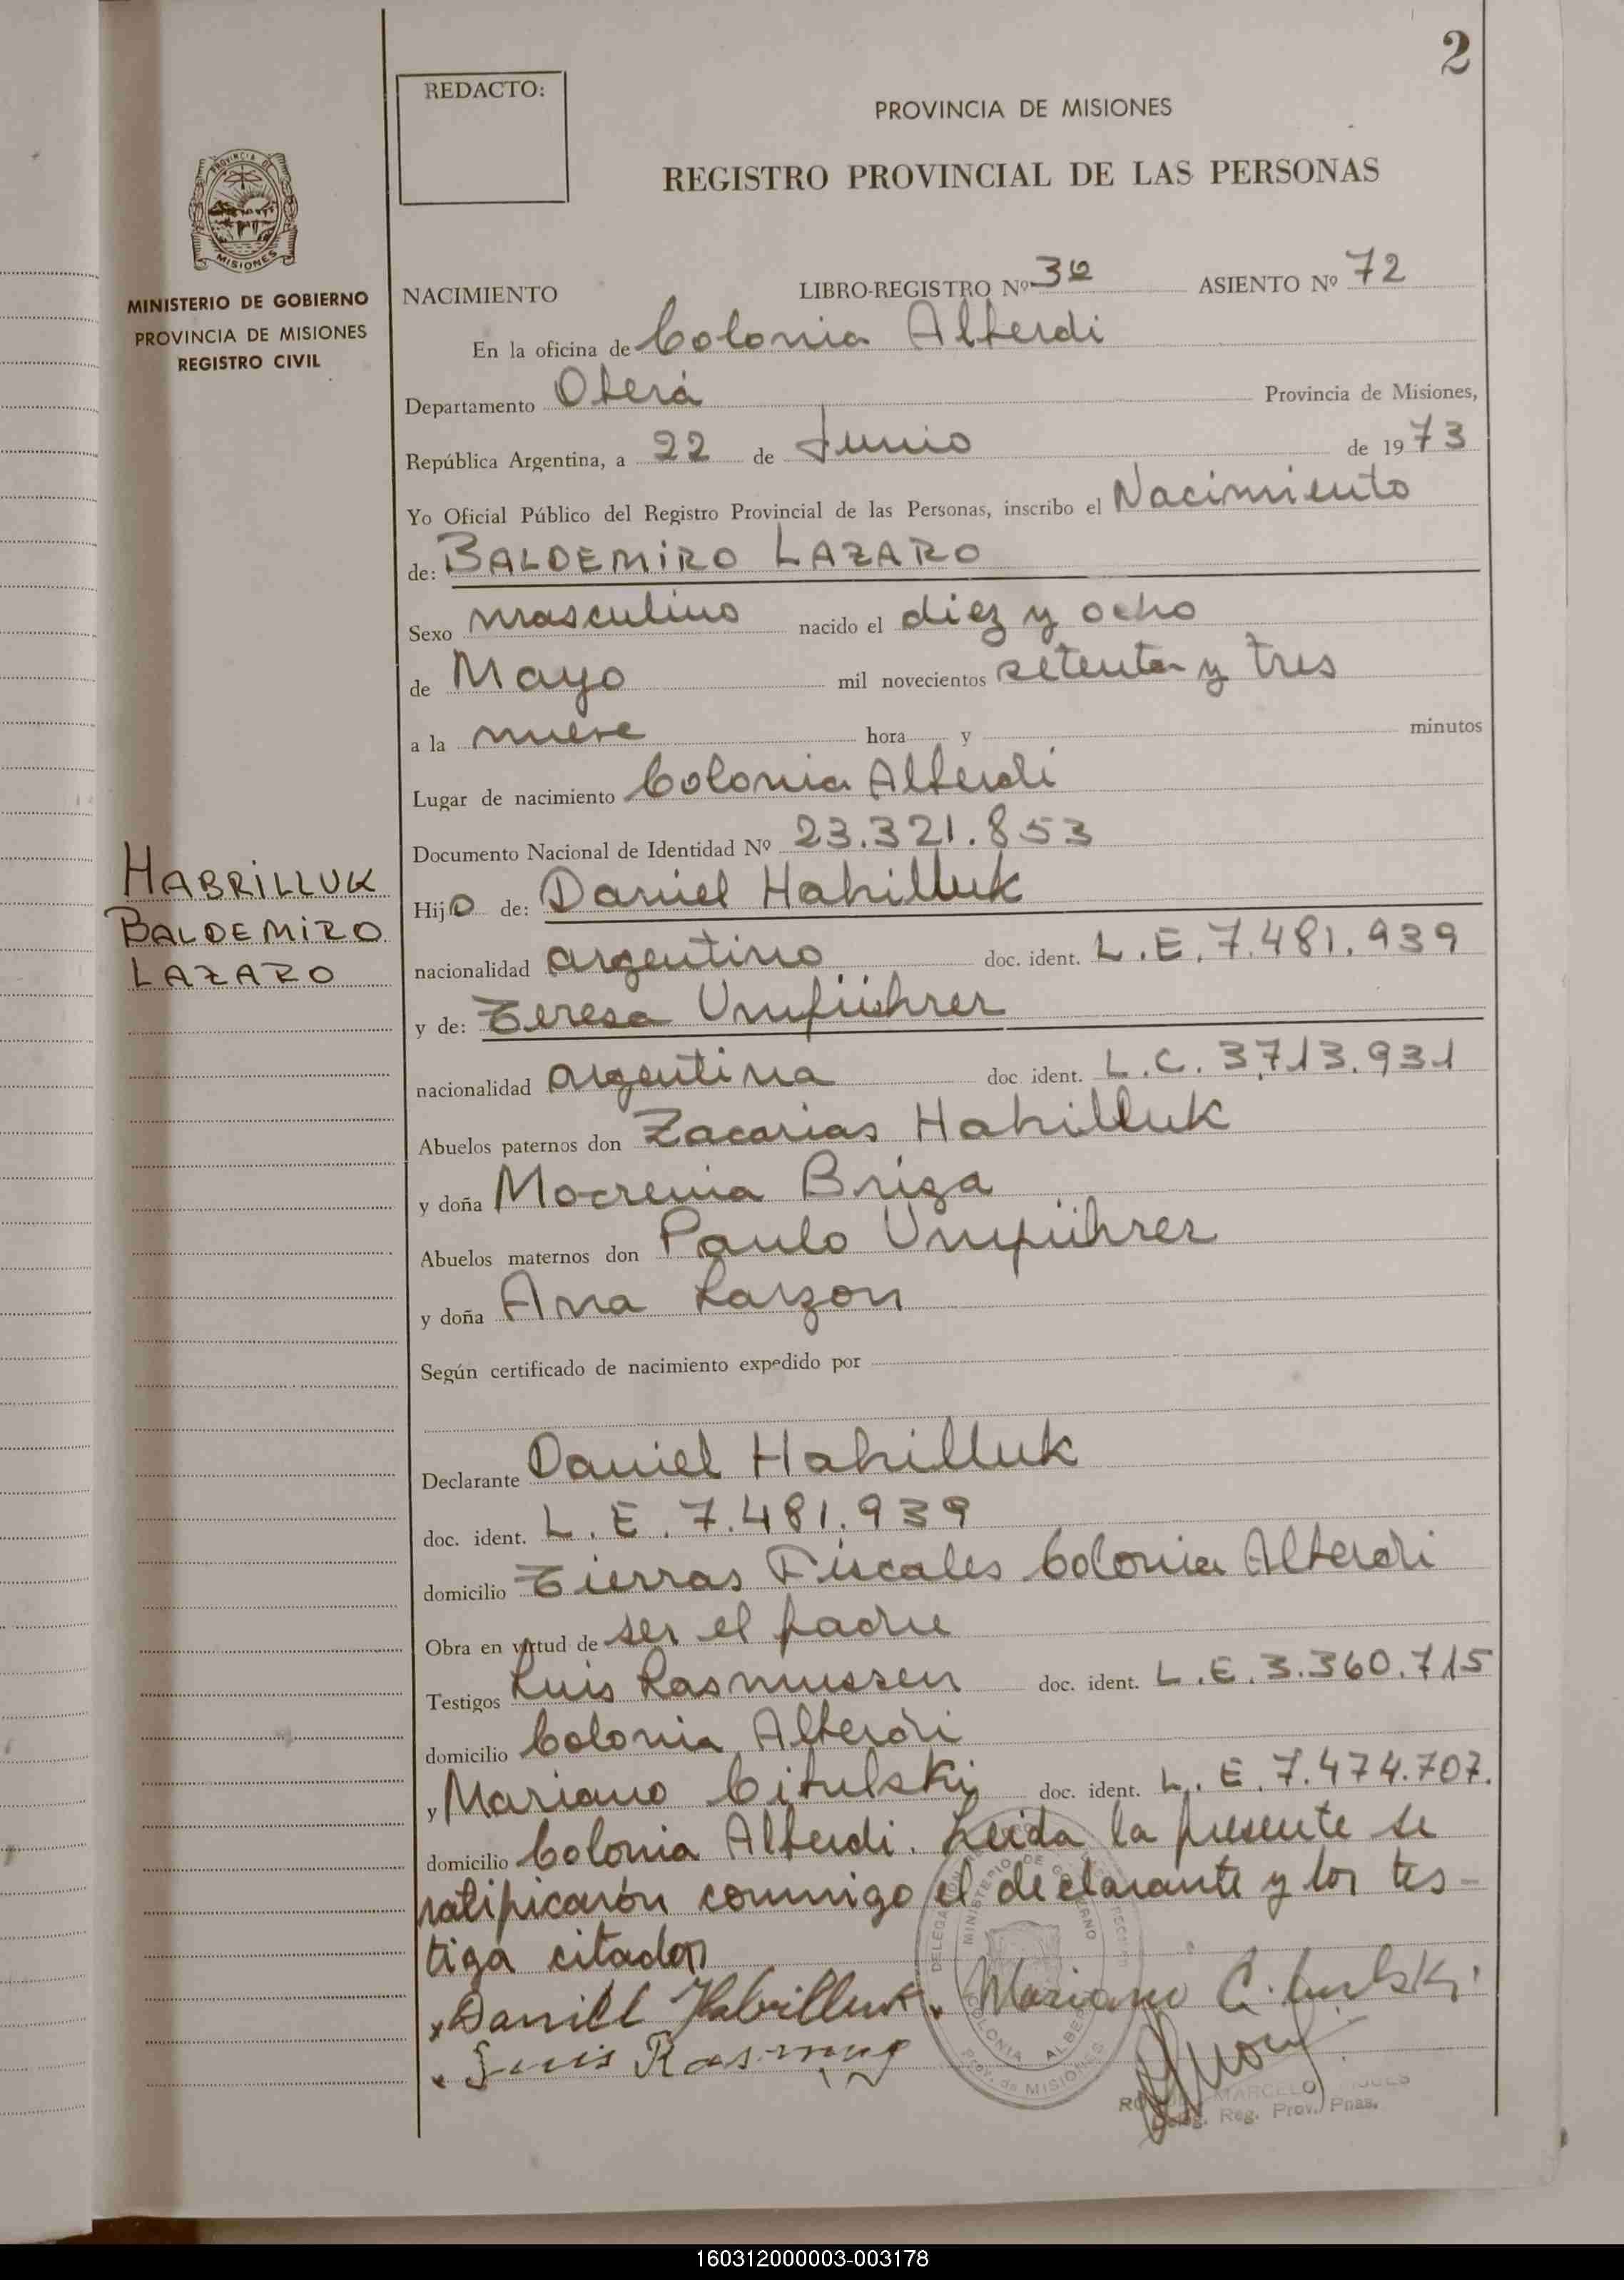 2
REDACTO:
PROVINCIA DE MISIONES
REGISTRO PROVINCIAL DE LAS PERSONAS
PROVINCIA DE
MISIONES
MINISTERIO DE GOBIERNO
PROVINCIA DE MISIONES
REGISTRO CIVIL
NACIMIENTO LIBRO-REGISTRO Nº ASIENTO Nº 72
En la oficina de Colonia Alberdi
Departamento Oberá Provincia de Misiones,
República Argentina, a 22 de Junio de 1973
Yo Oficial Público del Registro Provincial de las Personas, inscribo el Nacimiento
de: BALDEMIRO LAZARO
Sexo masculino nacido el diez y ocho
de Mayo mil novecientos setenta y tres
a la nueve hora y minutos
Lugar de nacimiento Colonia Alberdi
Documento Nacional de Identidad Nº 23.321.853
HABRILLUK
BALDEMIRO
LAZARO
Hijo de: Daniel Habrilluk
nacionalidad argentino doc. ident. L.E. 7.481.939
y de: Teresa Umführer
nacionalidad argentina doc ident. L.C. 3.713.931
Abuelos paternos don Zacarias Habrilluk
y doña Briga
Abuelos maternos don Paulo Umführer
y doña Ana Larzon
Según certificado de nacimiento expedido por
Declarante Daniel Habrilluk
doc. ident. L.E. 7.481.939
domicilio Tierras Fiscales Colonia Alberdi
Obra en virtud de ser el padre
Testigos Luis Rasmussen doc. ident. L.E. 3.360.715
domicilio Colonia Alberdi
y Mariano Citulski doc. ident. L.E. 7.474.707.
domicilio Colonia Alberdi. Leida la presente se
ratificarón conmigo el declarante y los tes-
tigo citados
x Daniel Habrilluk. Mariano
x Luis
MINISTERIO DE GOBIERNO
COLONIA ALBERDI
Prov. de MISIONES
MARCELO
Deleg. Reg. Prov. Pnas.
160312000003-003178